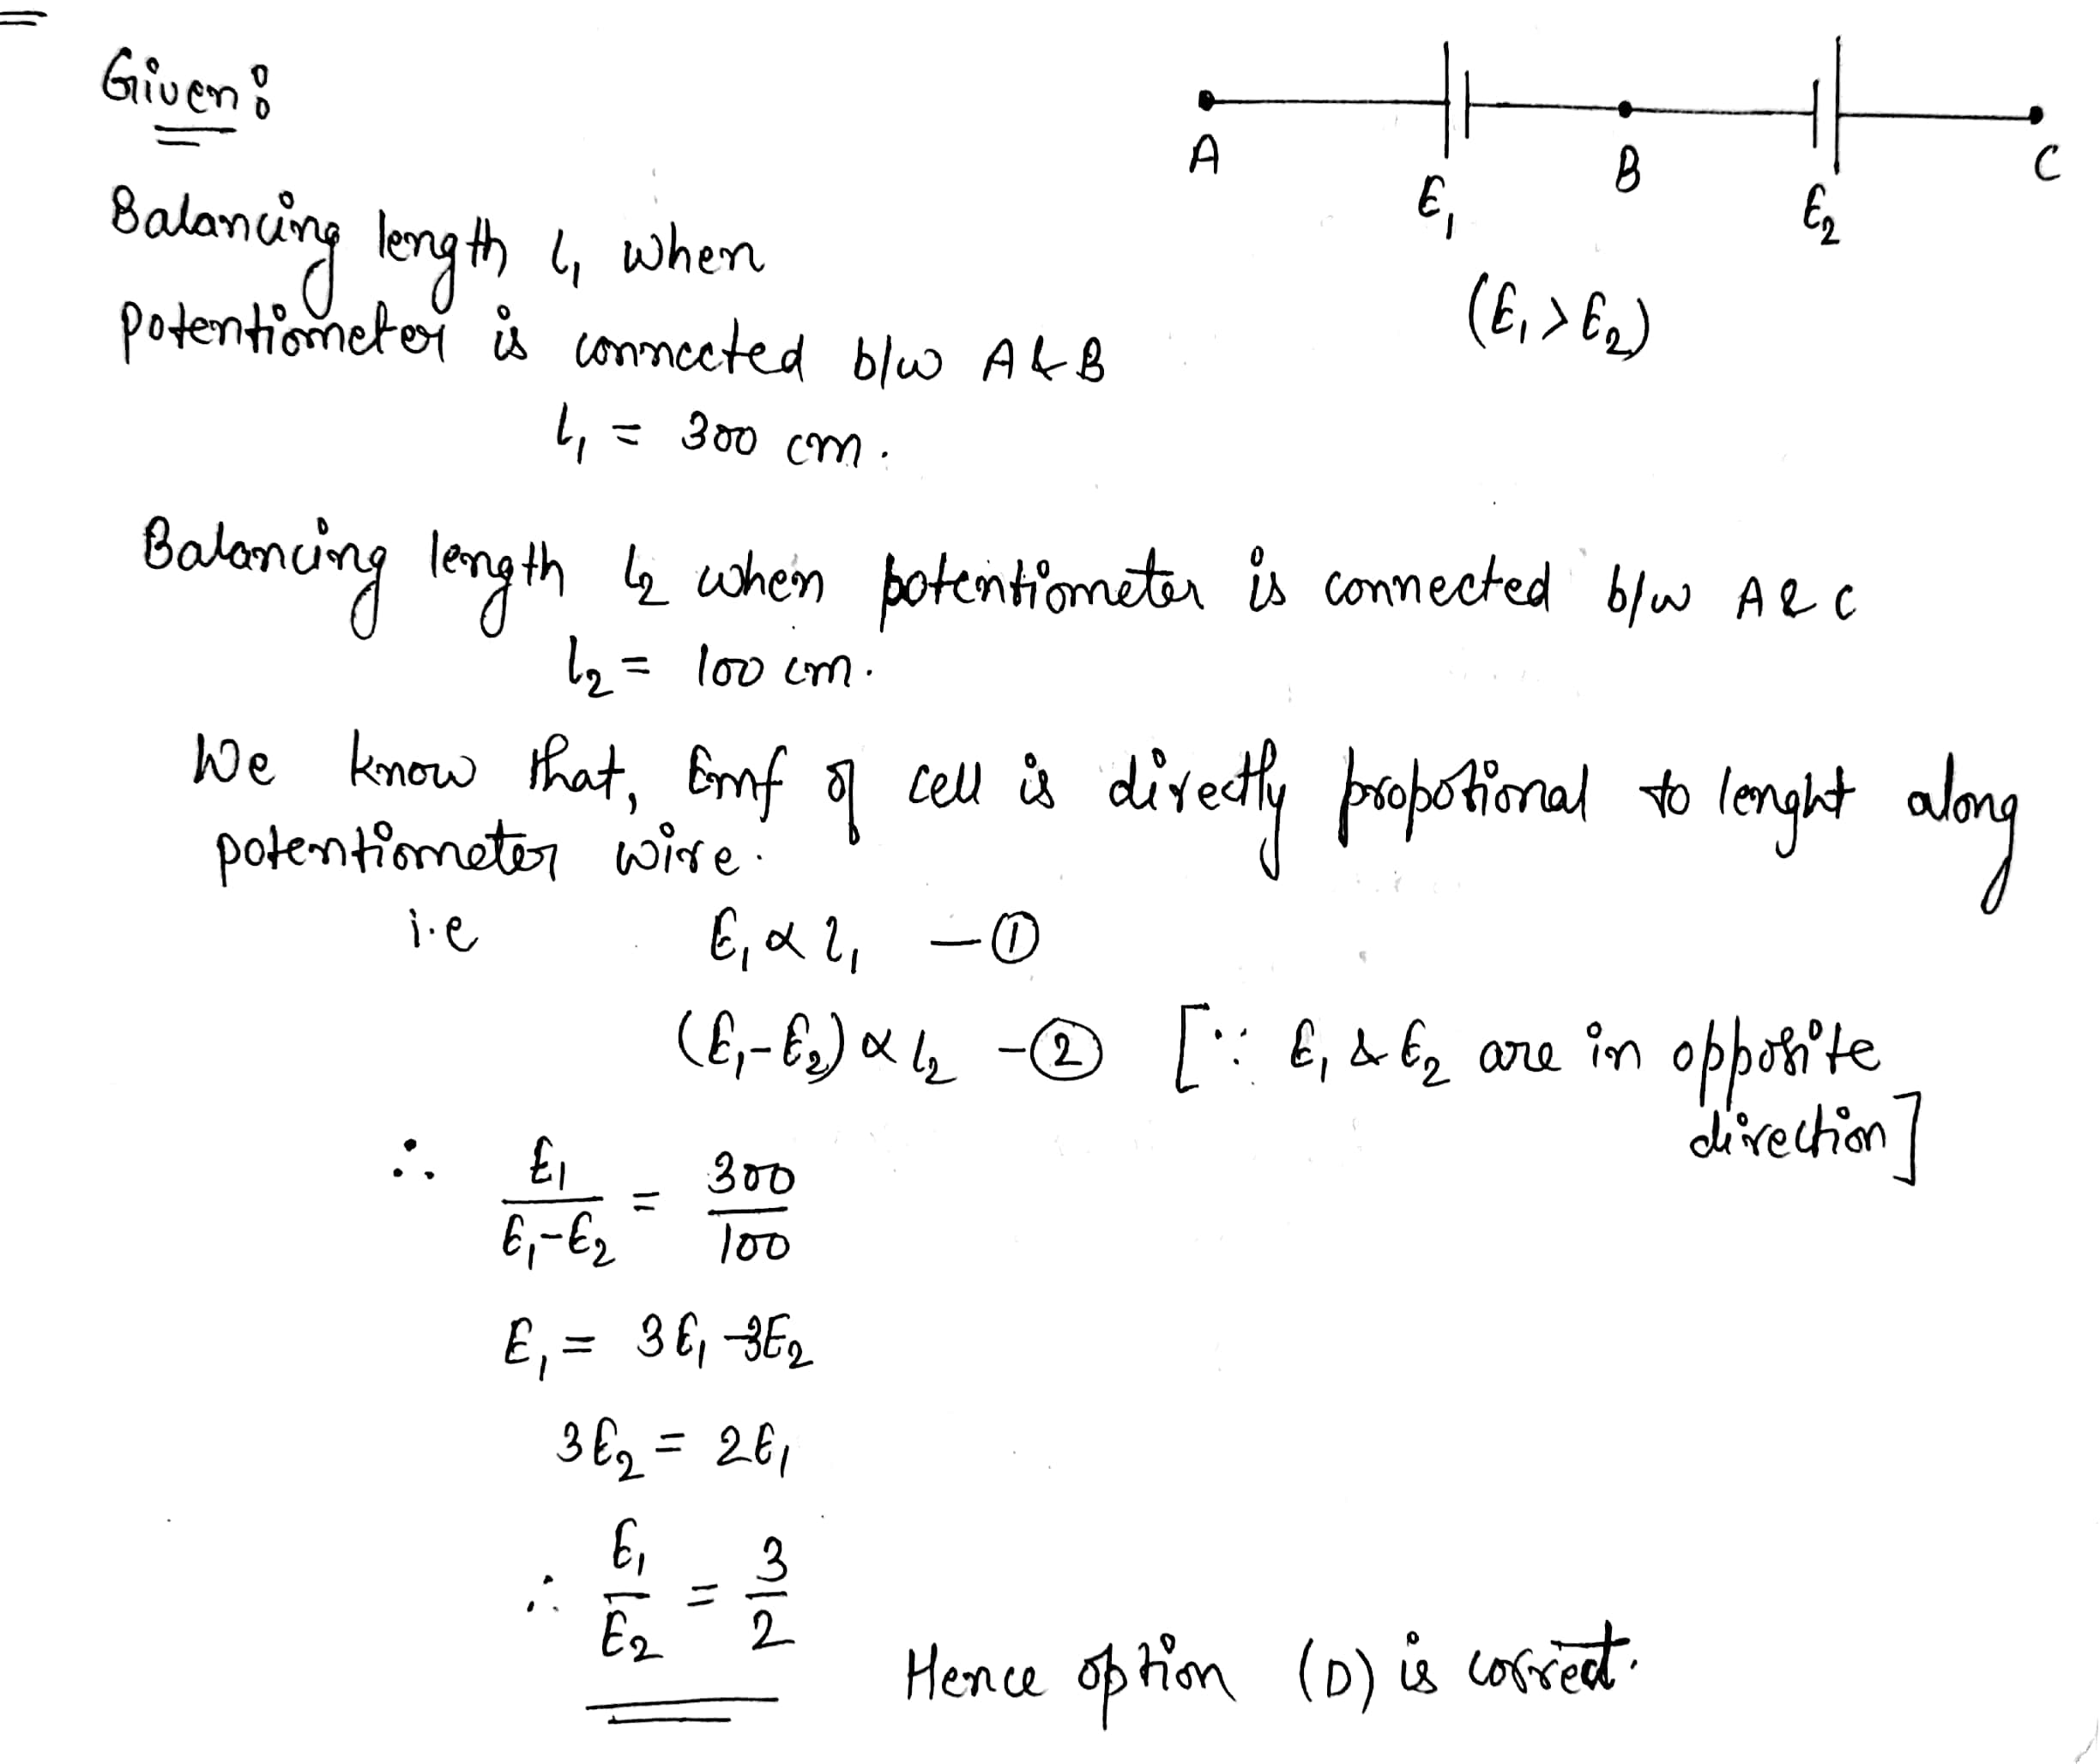 Given:
A E₁ B E₂ C
(E₁ > E₂)
Balancing length l₁ when
potentiometer is connected b/w A & B
l₁ = 300 cm.
Balancing length l₂ when potentiometer is connected b/w A & C
l₂ = 100 cm.
We know that, Emf of cell is directly propotional to lenght along
potentiometer wire.
i.e E₁ ∝ l₁ - ①
(E₁-E₂) ∝ l₂ - ② [∵ E₁ & E₂ are in opposite
direction]
∴ E₁/(E₁-E₂) = 300/100
E₁ = 3E₁ - 3E₂
3E₂ = 2E₁
∴ E₁/E₂ = 3/2
Hence option (D) is correct.